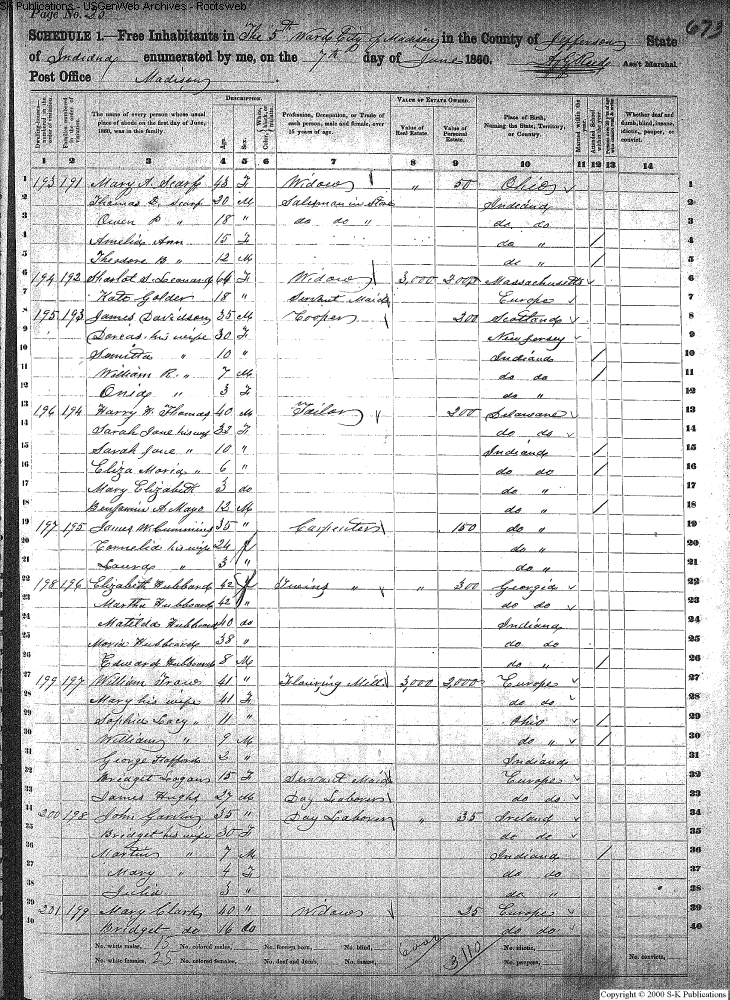 S-K Publications - USGenWeb Archives - Rootsweb
Page No. 25
673
SCHEDULE 1.—Free Inhabitants in The 5th Ward City of Madison in the County of Jefferson State
of Indiana enumerated by me, on the 7th day of June 1860. Ass't Marshal.
Post Office Madison
DESCRIPTION. VALUE OF ESTATE OWNED.
The name of every person whose usual place of abode on the first day of June, 1860, was in this family.
Age. Sex.
Profession, Occupation, or Trade of each person, male and female, over 15 years of age.
Value of Real Estate. Value of Personal Estate.
Place of Birth, Naming the State, Territory, or Country.
Whether deaf and dumb, blind, insane, idiotic, pauper, or convict.
1 2 3 4 5 6 7 8 9 10 11 12 13 14
1 193 191 Mary A. Scarf 43 F Widow " 50 Ohio 1
2 Thomas D. Scarf 20 M Salesman in Store Indiana 2
3 Owen P " 18 " do do " do do 3
4 Amelia Ann 15 F do " / 4
5 Theodore B " 12 M do " / 5
6 194 192 Sharlot S. Leonard 64 F Widow 3,000 200 Massachusetts 6
7 Kate Golder 18 " Servant Maid Europe 7
8 195 193 James Davidson 35 M Cooper 200 Scotland 8
9 Dorcas his wife 30 F New Jersey 9
10 " 10 " Indiana / 10
11 William R. " 7 M do do / 11
12 " 3 F do " 12
13 196 194 Harry W. Thomas 40 M Tailor 200 Delaware 13
14 Sarah Jane his wife 32 F do do 14
15 Sarah Jane " 10 " Indiana / 15
16 Eliza Maria " 6 " do do / 16
17 Mary Elizabeth 3 do do " 17
18 Benjamin A. Mayo 12 M do " / 18
19 197 195 James W. Cummins 35 " Carpenter 150 do " 19
20 Cornelia his wife 24 f do " 20
21 Laura " 3 " do " 21
22 198 196 Elizabeth Hubbard 42 f Twins " " 300 Georgia 22
23 Martha Hubbard 42 " do do 23
24 Matilda Hubbard 40 do Indiana 24
25 Maria Hubbard 38 " do do 25
26 Edward Hubbard 8 M do " / 26
27 199 197 William Traw 41 " Flouring Mill 3,000 2,000 Europe 27
28 Mary his wife 41 F do do 28
29 Sophia Lacy " 11 " Ohio / 29
30 William " 9 M do " / 30
31 George Stafford 2 " Indiana 31
32 Bridget Logan 15 F Servant Maid Europe 32
33 James Hughs 27 M Day Laborer do do 33
34 200 198 John 35 " Day Laborer " 35 Ireland 34
35 Bridget his wife 30 F do do 35
36 Martin " 7 M Indiana / 36
37 Mary " 4 F do do 37
38 Julia " 3 " do " 38
39 201 199 Mary Clark 40 " Widow 25 Europe 39
40 Bridget do 16 do do do 40
No. white males, 15 No. colored males, No. foreign born, No. blind, 6000 3110 No. idiotic,
No. white females, 25 No. colored females, No. deaf and dumb, No. insane, No. paupers, No. convicts,
Copyright © 2000 S-K Publications